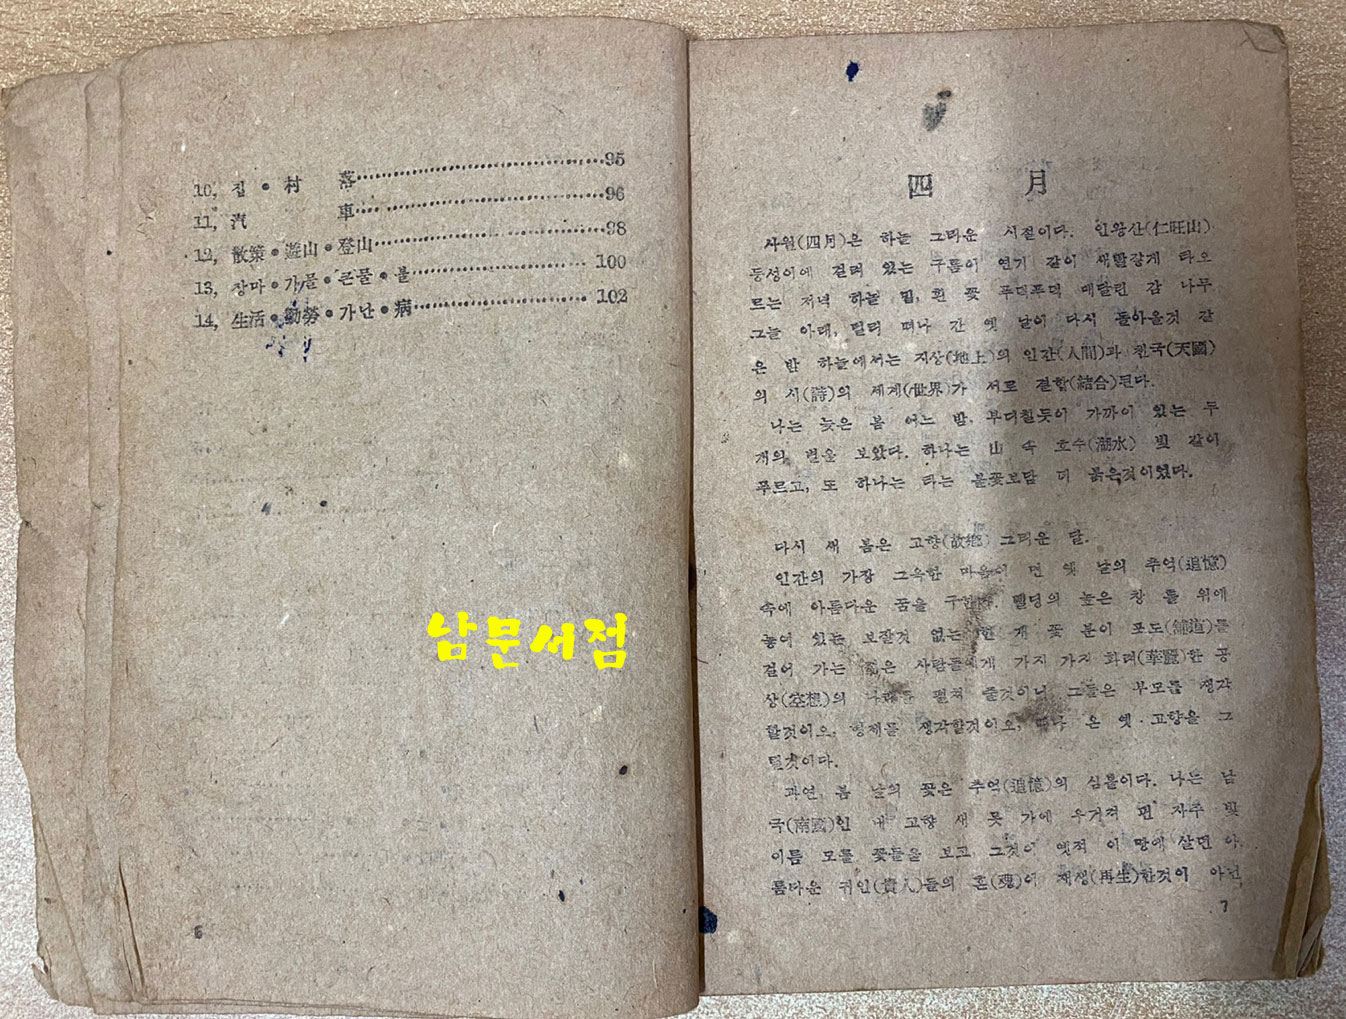 10, 집・村 落 95
11, 汽 車 96
12, 散策・遊山・登山 98
13, 장마・가물・큰물・불 100
14, 生活・勤勞・가난・病 102
남문서점
6
四 月
사월(四月)은 하늘 그리운 시절이다. 인왕산(仁旺山)
등성이에 걸려 있는 구름이 연기 같이 새빨갛게 타오
르는 저녁 하늘 밑, 흰 꽃 푸덕푸덕 매달린 감 나무
그늘 아래, 멀리 떠나 간 옛 날이 다시 돌아올것 같
은 밤 하늘에서는 지상(地上)의 인간(人間)과 천국(天國)
의 시(詩)의 세계(世界)가 서로 결합(結合)된다.
나는 늦은 봄 어느 밤, 부더칠듯이 가까이 있는 두
개의 별을 보았다. 하나는 山 속 호수(湖水) 빛 같이
푸르고, 또 하나는 타는 불꽃보담 더 붉은것이었다.
다시 새 봄은 고향(故鄕) 그리운 달.
인간의 가장 그윽한 마음이 먼 옛 날의 추억(追憶)
속에 아름다운 꿈을 구한다. 삘딩의 높은 창 틀 위에
놓여 있는 보잘것 없는 한 개 꽃 분이 포도(舖道)를
걸어 가는 은 사람들에게 가지 가지 화려(華麗)한 공
상(空想)의 나래를 펼쳐 줄것이니 그들은 부모를 생각
할것이오, 형제를 생각할것이오, 떠나 온 옛 고향을 그
릴것이다.
과연 봄 날의 꽃은 추억(追憶)의 심볼이다. 나는 남
국(南國)인 내 고향 새 못 가에 우거져 핀 자주 빛
이름 모를 꽃들을 보고 그것이 옛적 이 땅에 살던 아
름다운 귀인(貴人)들의 혼(魂)이 재생(再生)한것이 아닌
7